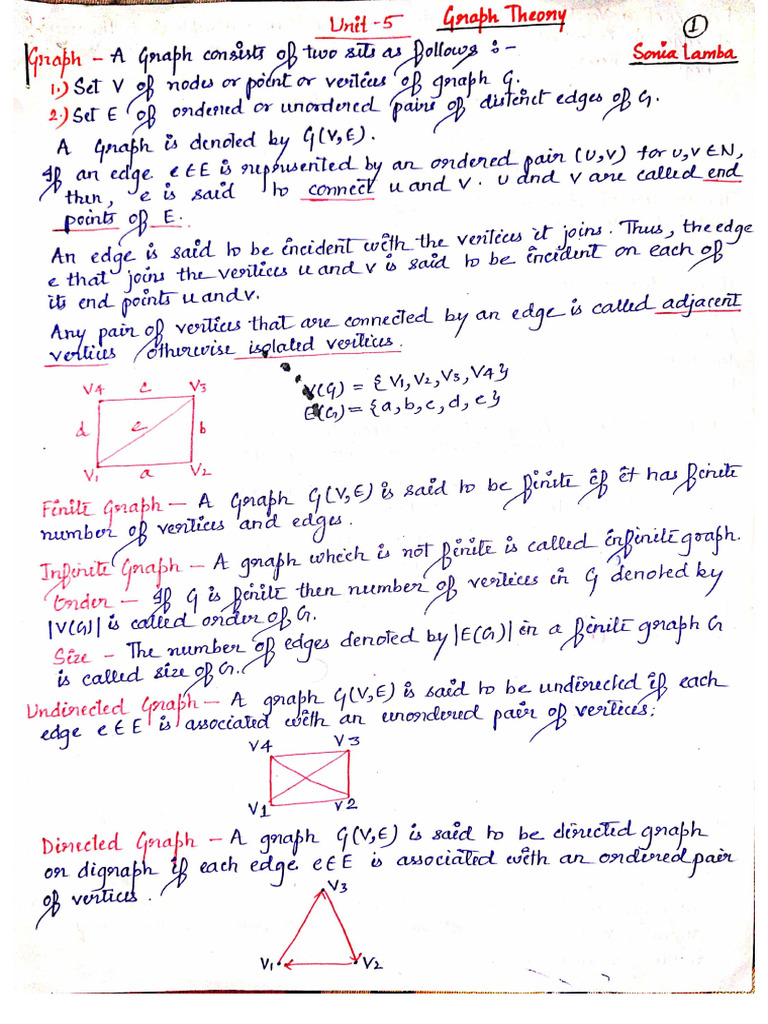 Unit-5 Graph Theory ①
Graph - A Graph consists of two sits as follows :-
Sonia Lamba
1.) Set V of nodes or point or vertices of graph G.
2.) Set E of ordered or unordered pairs of distinct edges of G.
A Graph is denoted by G(V,E).
If an edge e∈E is represented by an ordered pair (u,v) for u,v∈N,
then, e is said to connect u and v. u and v are called end
points of E.
An edge is said to be incident with the vertices it joins. Thus, the edge
e that joins the vertices u and v is said to be incident on each of
its end points u and v.
Any pair of vertices that are connected by an edge is called adjacent
vertices otherwise isolated vertices.
V4 c V3
d e b
V1 a V2
V(G) = {V1, V2, V3, V4}
E(G) = {a, b, c, d, e}
Finite Graph - A Graph G(V,E) is said to be finite if it has finite
number of vertices and edges.
Infinite Graph - A graph which is not finite is called infinite graph.
Order - If G is finite then number of vertices in G denoted by
|V(G)| is called order of G.
Size - The number of edges denoted by |E(G)| in a finite graph G
is called size of G.
Undirected Graph - A graph G(V,E) is said to be undirected if each
edge e∈E is associated with an unordered pair of vertices.
V4 V3
V1 V2
Directed Graph - A graph G(V,E) is said to be directed graph
or digraph if each edge e∈E is associated with an ordered pair
of vertices.
V3
V1 V2